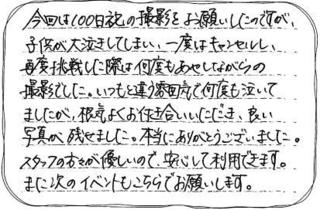 今回は100日祝の撮影をお願いしたのですが、
子供が大泣きしてしまい、一度はキャンセルし、
再度挑戦した際は何度もあやしながらの
撮影でした。いつもと違う雰囲気で何度も泣いて
ましたが、根気よくお付き合いいただき、良い
写真が残せました。本当にありがとうございました。
スタッフの方々が優しいので、安心して利用できます。
また次のイベントもこちらでお願いします。